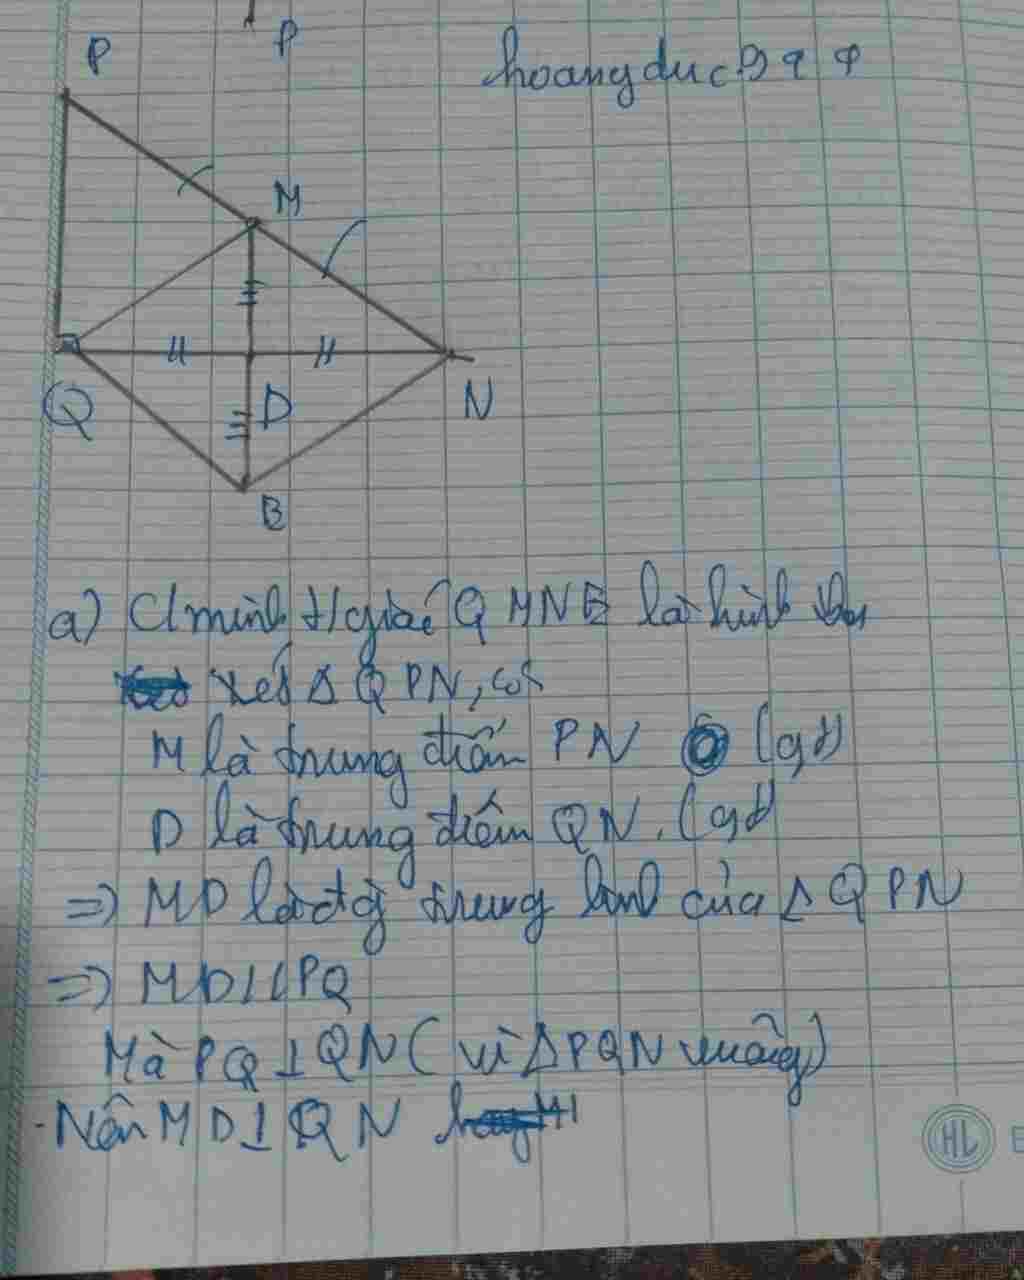 P
P
hoangduc
M
Q
D
N
B
a) C/minh t/giác QMNB là hình
xét Δ QPN, có
M là trung điểm PN (gt)
D là trung điểm QN. (gt)
=> MD là đg trung bình của Δ QPN
=> MD//PQ
Mà PQ⊥QN (vì ΔPQN vuông)
Nên MD⊥QN
HL